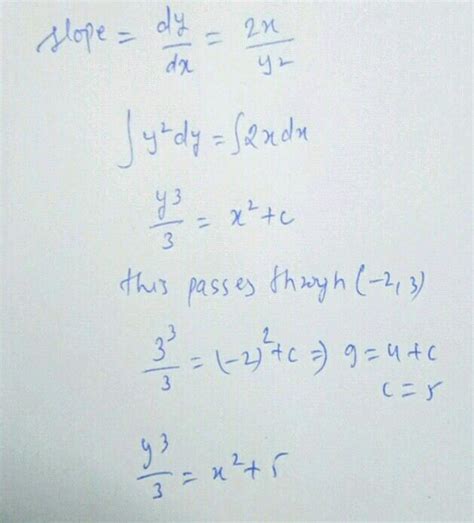 slope = dy/dx = 2x/y2
∫y²dy = ∫2xdx
y3/3 = x²+c
this passes throgh (-2, 3)
3³/3 = (-2)²+c ⇒ 9=4+c
c=5
y3/3 = x²+5